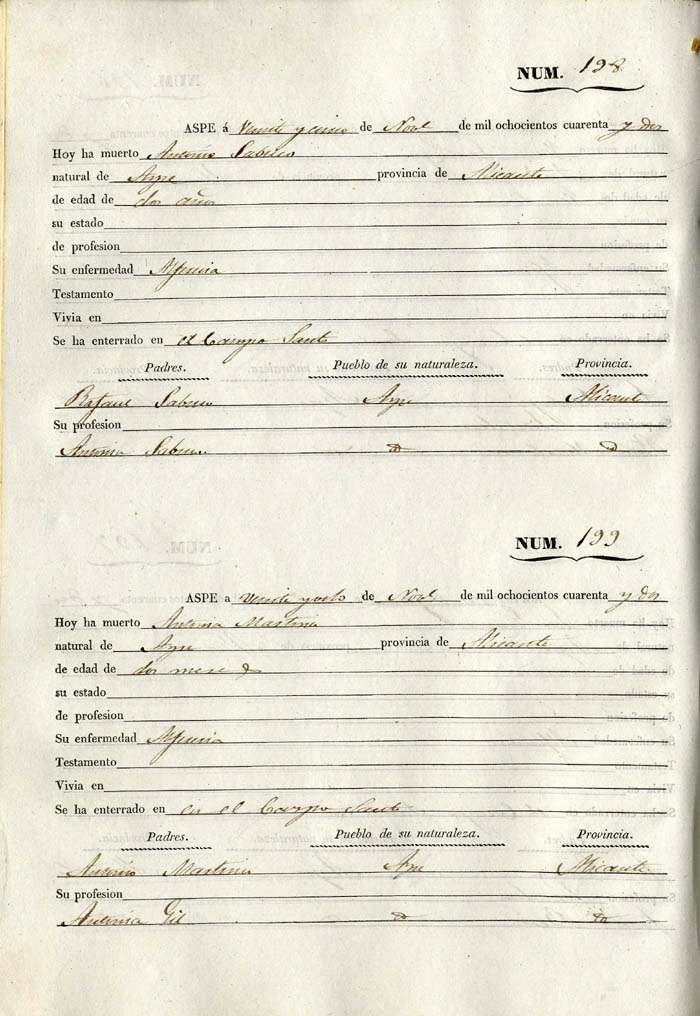 NUM. 198
ASPE á Veinte y cinco de Nove de mil ochocientos cuarenta y dos
Hoy ha muerto Antonio Sabuco
natural de Aspe provincia de Alicante
de edad de dos años
su estado
de profesion
Su enfermedad
Testamento
Vivia en
Se ha enterrado en el Campo Santo
Padres. Pueblo de su naturaleza. Provincia.
Rafael Sabuco Aspe Alicante
Su profesion
Antonia Sabuco
NUM. 199
ASPE a Veinte y ocho de Nove de mil ochocientos cuarenta y dos
Hoy ha muerto Antonia Martines
natural de Aspe provincia de Alicante
de edad de dos meses
su estado
de profesion
Su enfermedad
Testamento
Vivia en
Se ha enterrado en en el Campo Santo
Padres. Pueblo de su naturaleza. Provincia.
Antonio Martines Aspe Alicante
Su profesion
Antonia Gil